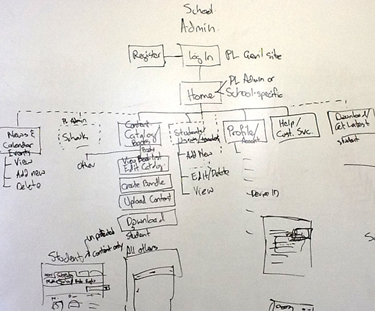 School
Admin
Register
Log In
PL Gen'l site
Home
PL Admin or
School-specific
News &
Calendar
Events
View
Add new
Delete
PL Admin
Content
Catalog/
Books
View Booklist
Edit Catalog
Create Bundle
Upload Content
Download
Students/
Add New
Edit/Delete
View
Profile/
Account
Help/
Cust. Svc.
Download/
Get Latest
Student
content only
Student
All others
Device ID